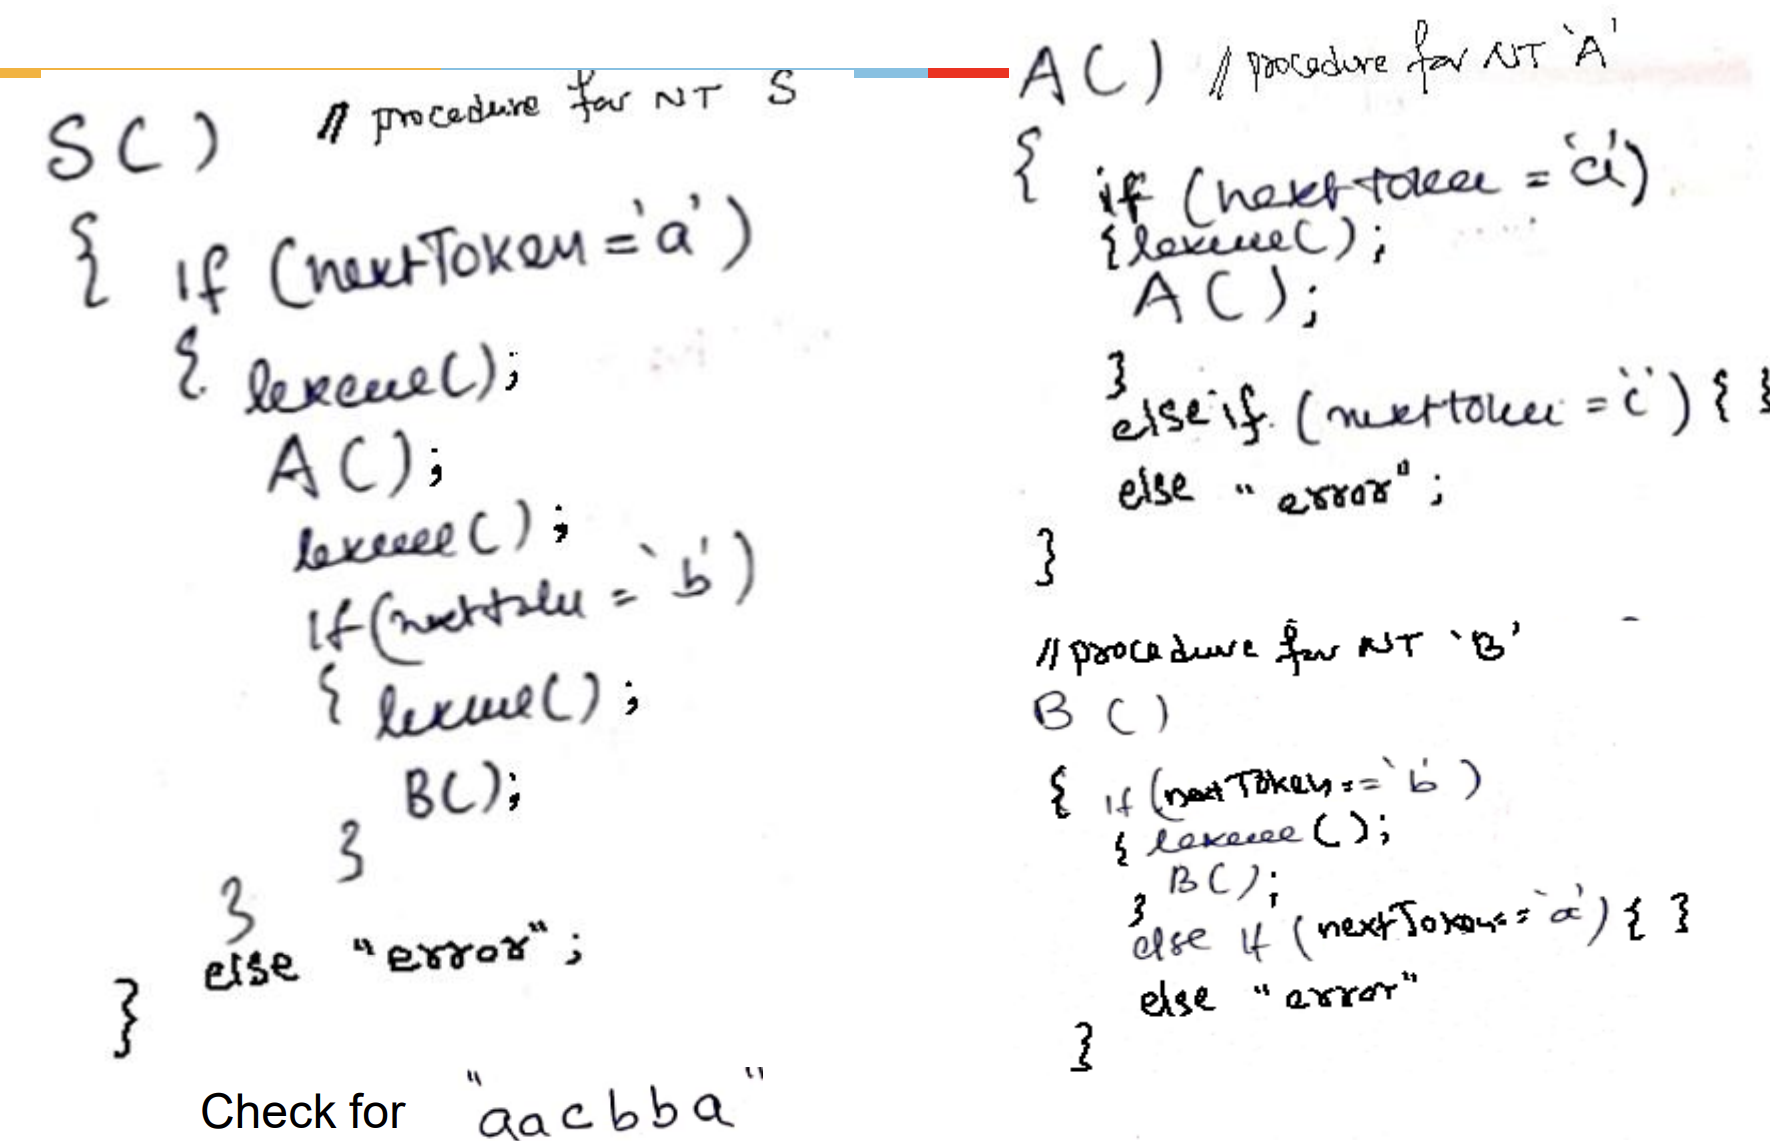 S() // procedure for NT S
{ if (nextToken = 'a')
{ lexeme();
A();
lexeme();
if (nexttoken = 'b')
{ lexeme();
B();
}
}
else "error";
}
Check for "aacbba"
A() // procedure for NT 'A'
{ if (nexttoken = 'a')
{ lexeme();
A();
}
else if (nexttoken = 'c') { }
else "error";
}
// procedure for NT 'B'
B ()
{ if (nextToken == 'b')
{ lexeme();
B();
}
else if (nextToken == 'a') { }
else "error"
}